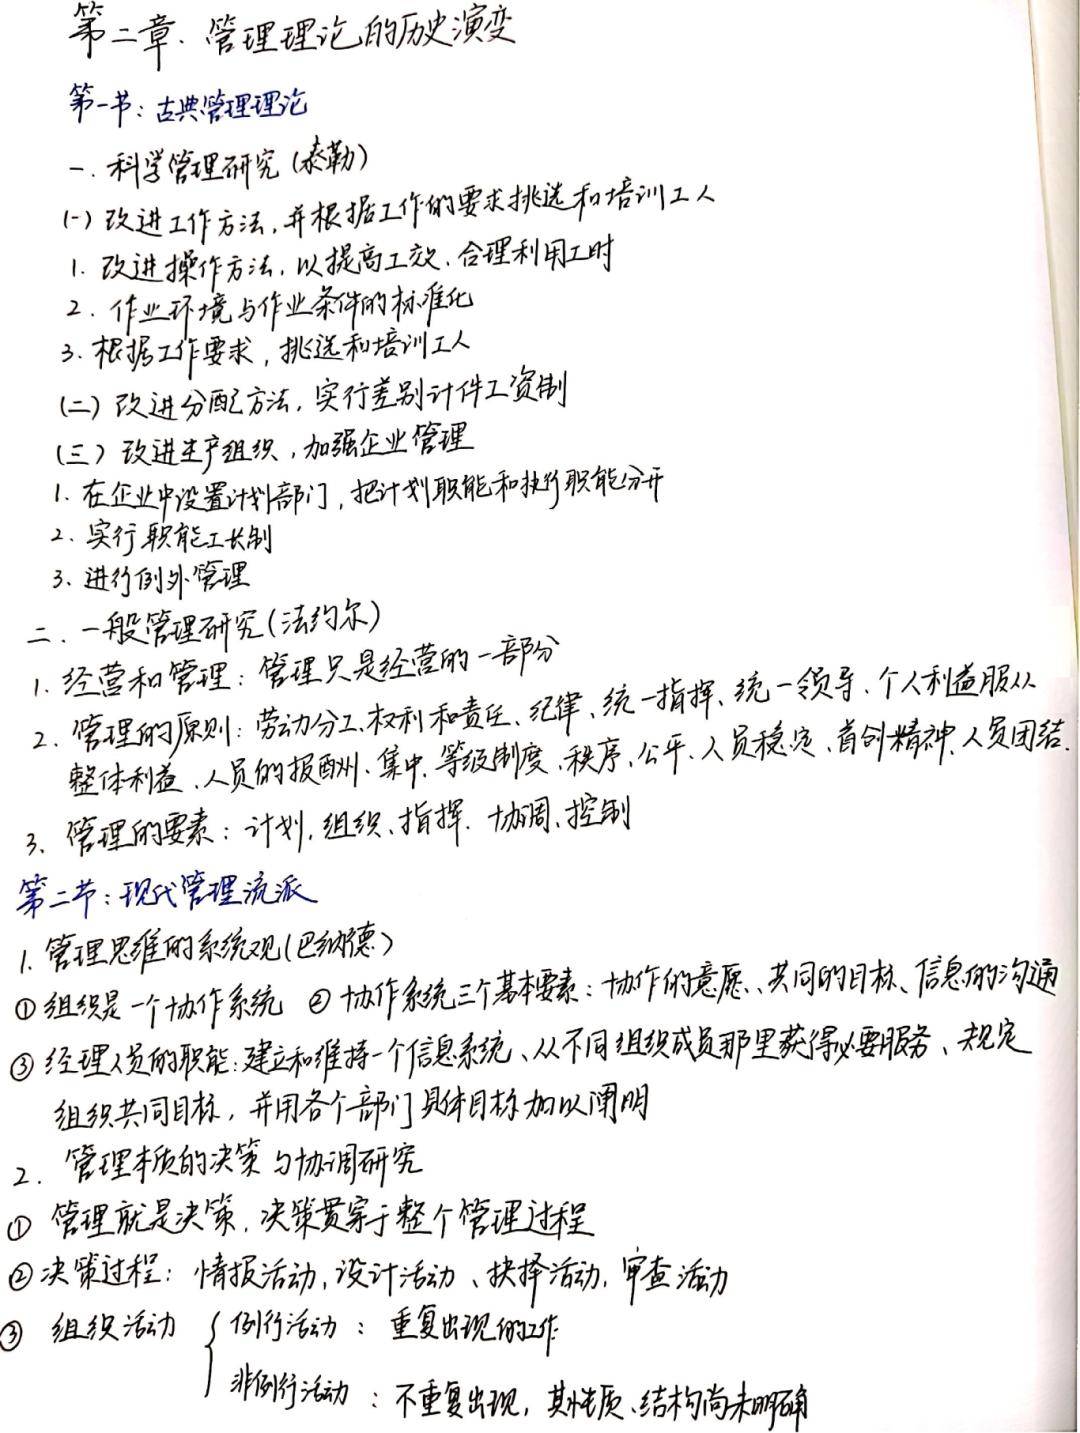 第二章、管理理论的历史演变
第一节：古典管理理论
一．科学管理研究（泰勒）
(一) 改进工作方法，并根据工作的要求挑选和培训工人
1. 改进操作方法，以提高工效、合理利用工时
2. 作业环境与作业条件的标准化
3. 根据工作要求，挑选和培训工人
(二) 改进分配方法，实行差别计件工资制
(三) 改进生产组织，加强企业管理
1. 在企业中设置计划部门，把计划职能和执行职能分开
2. 实行职能工长制
3. 进行例外管理
二．一般管理研究（法约尔）
1. 经营和管理：管理只是经营的一部分
2. 管理的原则：劳动分工、权利和责任、纪律、统一指挥、统一领导、个人利益服从
整体利益、人员的报酬、集中、等级制度、秩序、公平、人员稳定、首创精神、人员团结.
3. 管理的要素：计划，组织、指挥．协调、控制
第二节：现代管理流派
1. 管理思维的系统观（巴纳德）
① 组织是一个协作系统 ② 协作系统三个基本要素：协作的意愿、共同的目标、信息的沟通
③ 经理人员的职能：建立和维持一个信息系统、从不同组织成员那里获得必要服务、规定
组织共同目标，并用各个部门具体目标加以阐明
2. 管理本质的决策与协调研究
① 管理就是决策，决策贯穿于整个管理过程
② 决策过程：情报活动，设计活动、抉择活动，审查活动
③ 组织活动 { 例行活动：重复出现的工作
非例行活动：不重复出现，其性质、结构尚未明确